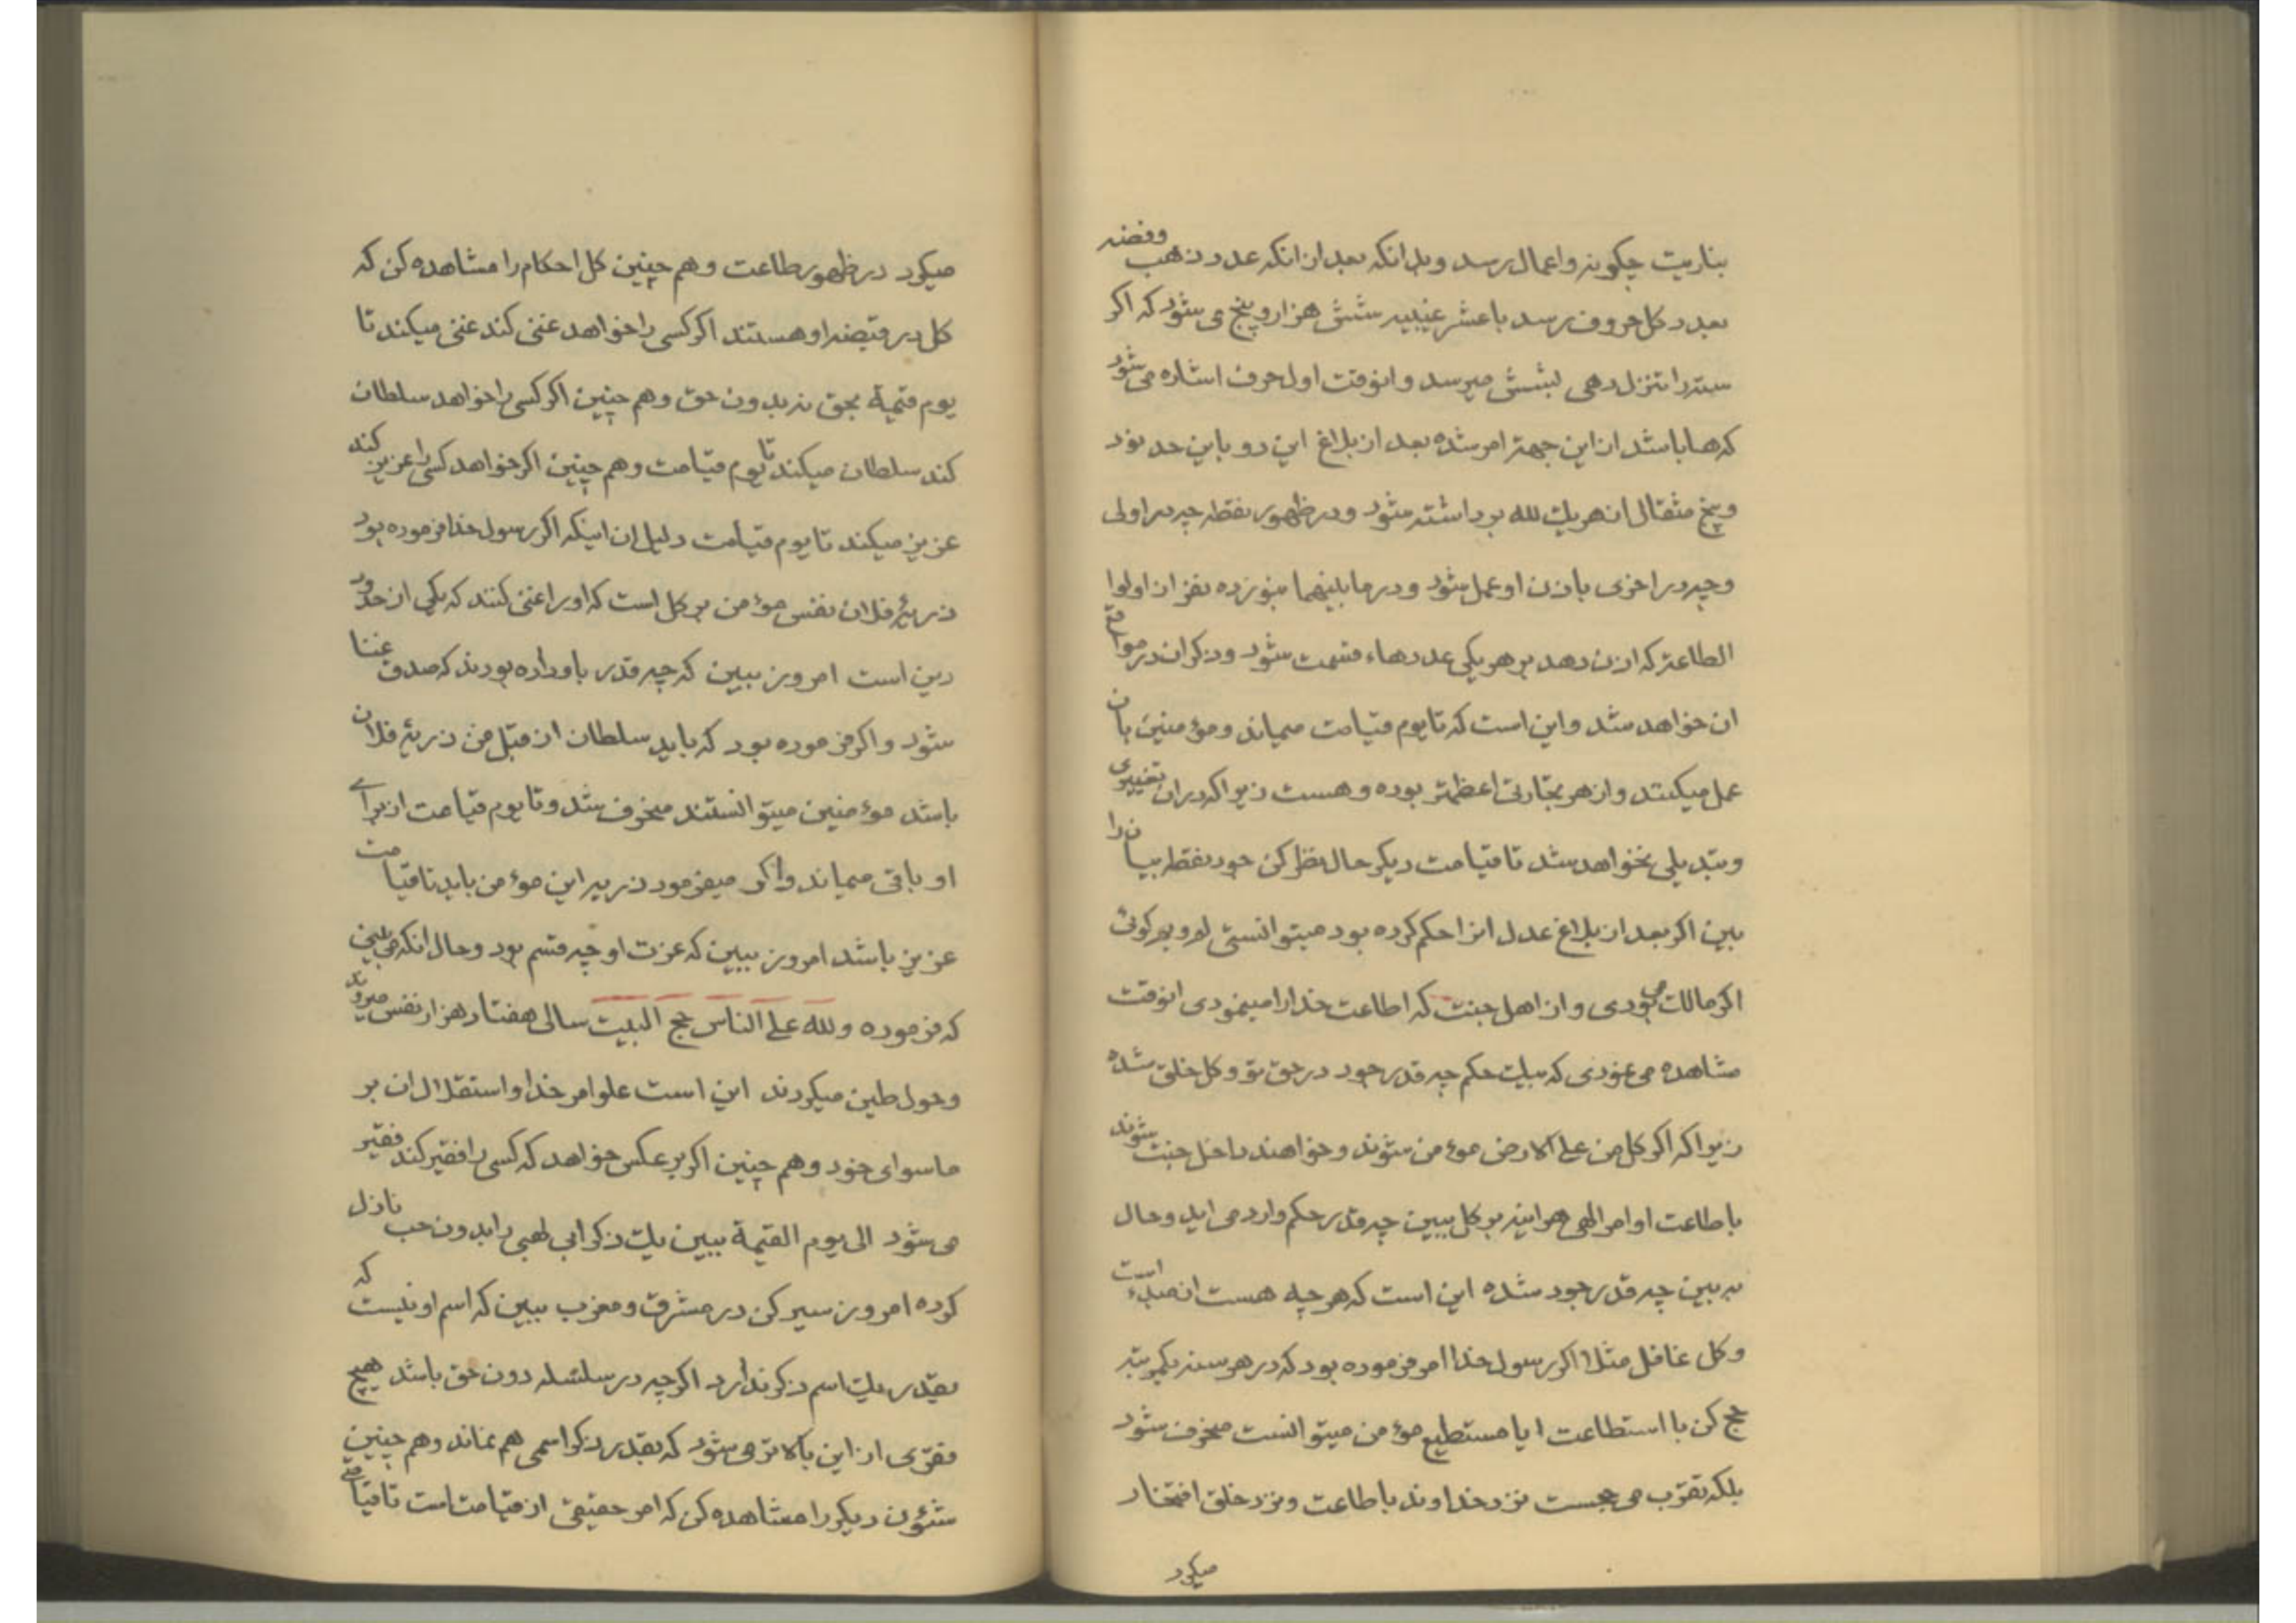 بناریت چکونه واعمال رسد وبدانکه بعد از انکه عدد ذهب وفضه
بعدد کل حروف رسد با عشر غیبیه شش هزار و پنج می شود که اکر
سته را تنزل دهی بشش میرسد وانوقت اول حرف اشاره می شود
که ها باشد از این جهة امر شده بعد از بلاغ این دو باین حد نود
وپنج مثقال از هر یك لله برداشته شود ودر ظهور نقطه چه در اولی
وچه در اخری باذن او عمل شود ودر ما بینهما بنوزده نفر از اولوا
الطاعة که اذن دهد بر هر یکی عدد هاء قسمت شود وذکر ان در مواقع
ان خواهد شد واین است که تا یوم قیامت میماند ومؤمنین بان
عمل میکنند واز هر تجارتی اعظمتر بوده وهست زیرا که در ان تغییری
وتبدیلی نخواهد شد تا قیامت دیکر حال نظر کن جود نقطه بیان را
ببین اکر بعد از بلاغ عدل انرا حکم کرده بود میتوانستی لم وبم کوئی
اکر مالك می بودی واز اهل جنت که اطاعت خدا را مینمودی انوقت
مشاهده می نمودی که بیك حکم چه قدر جود در حق تو وکل خلق شده
زیرا که اکر کل من علی الارض مؤمن شوند وخواهند داخل جنت شوند
باطاعت اوامر الهی هراینه بر کل ببین چه قدر حکم وارد می اید وحال
به بین چه قدر جود شده این است که هر چه هست از مبدء است
وکل غافل مثلا اکر رسول خدا امر فرموده بود که در هر سنه یکمرتبه
حج کن با استطاعت ایا مستطیع مؤمن میتوانست منحرف شود
بلکه تقرب می جست نزد خداوند باطاعت ونزد خلق افتخار
میکرد
میکرد در ظهور طاعت وهم چنین کل احکام را مشاهده کن که
کل در قبضه او هستند اکر کسی را خواهد غنی کند غنی میکند تا
یوم قیمة بحق نه بدون حق وهم چنین اکر کسی را خواهد سلطان
کند سلطان میکند تا یوم قیامت وهم چنین اکر خواهد کسی را عزیز کند
عزیز میکند تا یوم قیامت دلیل ان اینکه اکر رسول خدا فرموده بود
ذریهٔ فلان نفس مؤمن بر کل است که او را غنی کنند که یکی از حدود
دین است امروز ببین که چه قدر باو داده بودند که صدق غنا
شود واکر فرموده بود که باید سلطان از قبل من ذریهٔ فلان
باشد مؤمنین میتوانستند منحرف شد وتا یوم قیامت از برای
او باقی میماند واکر میفرمود ذریه این مؤمن باید تا قیامت
عزیز باشد امروز ببین که عزت او چه قسم بود وحال انکه می بینی
که فرموده ولله علی الناس حج البیت سالی هفتاد هزار نفس میروند
وحول طین میکردند این است علو امر خدا واستقلال ان بر
ماسوای خود وهم چنین اکر بر عکس خواهد که کسی را فقیر کند فقیر
می شود الی یوم القیمة ببین یك ذکر ابی لهبی را بدون حب نازل
کرده امروز سیر کن در مشرق ومغرب ببین که اسم او نیست که
بقدر یك اسم ذکر ندارد اکر چه در سلسله دون حق باشد هیچ
فقری از این بالاتر می شود که بقدر ذکر اسمی هم نماند وهم چنین
شئون دیکر را مشاهده کن که امر حقیقی از قیامت است تا قیامتی